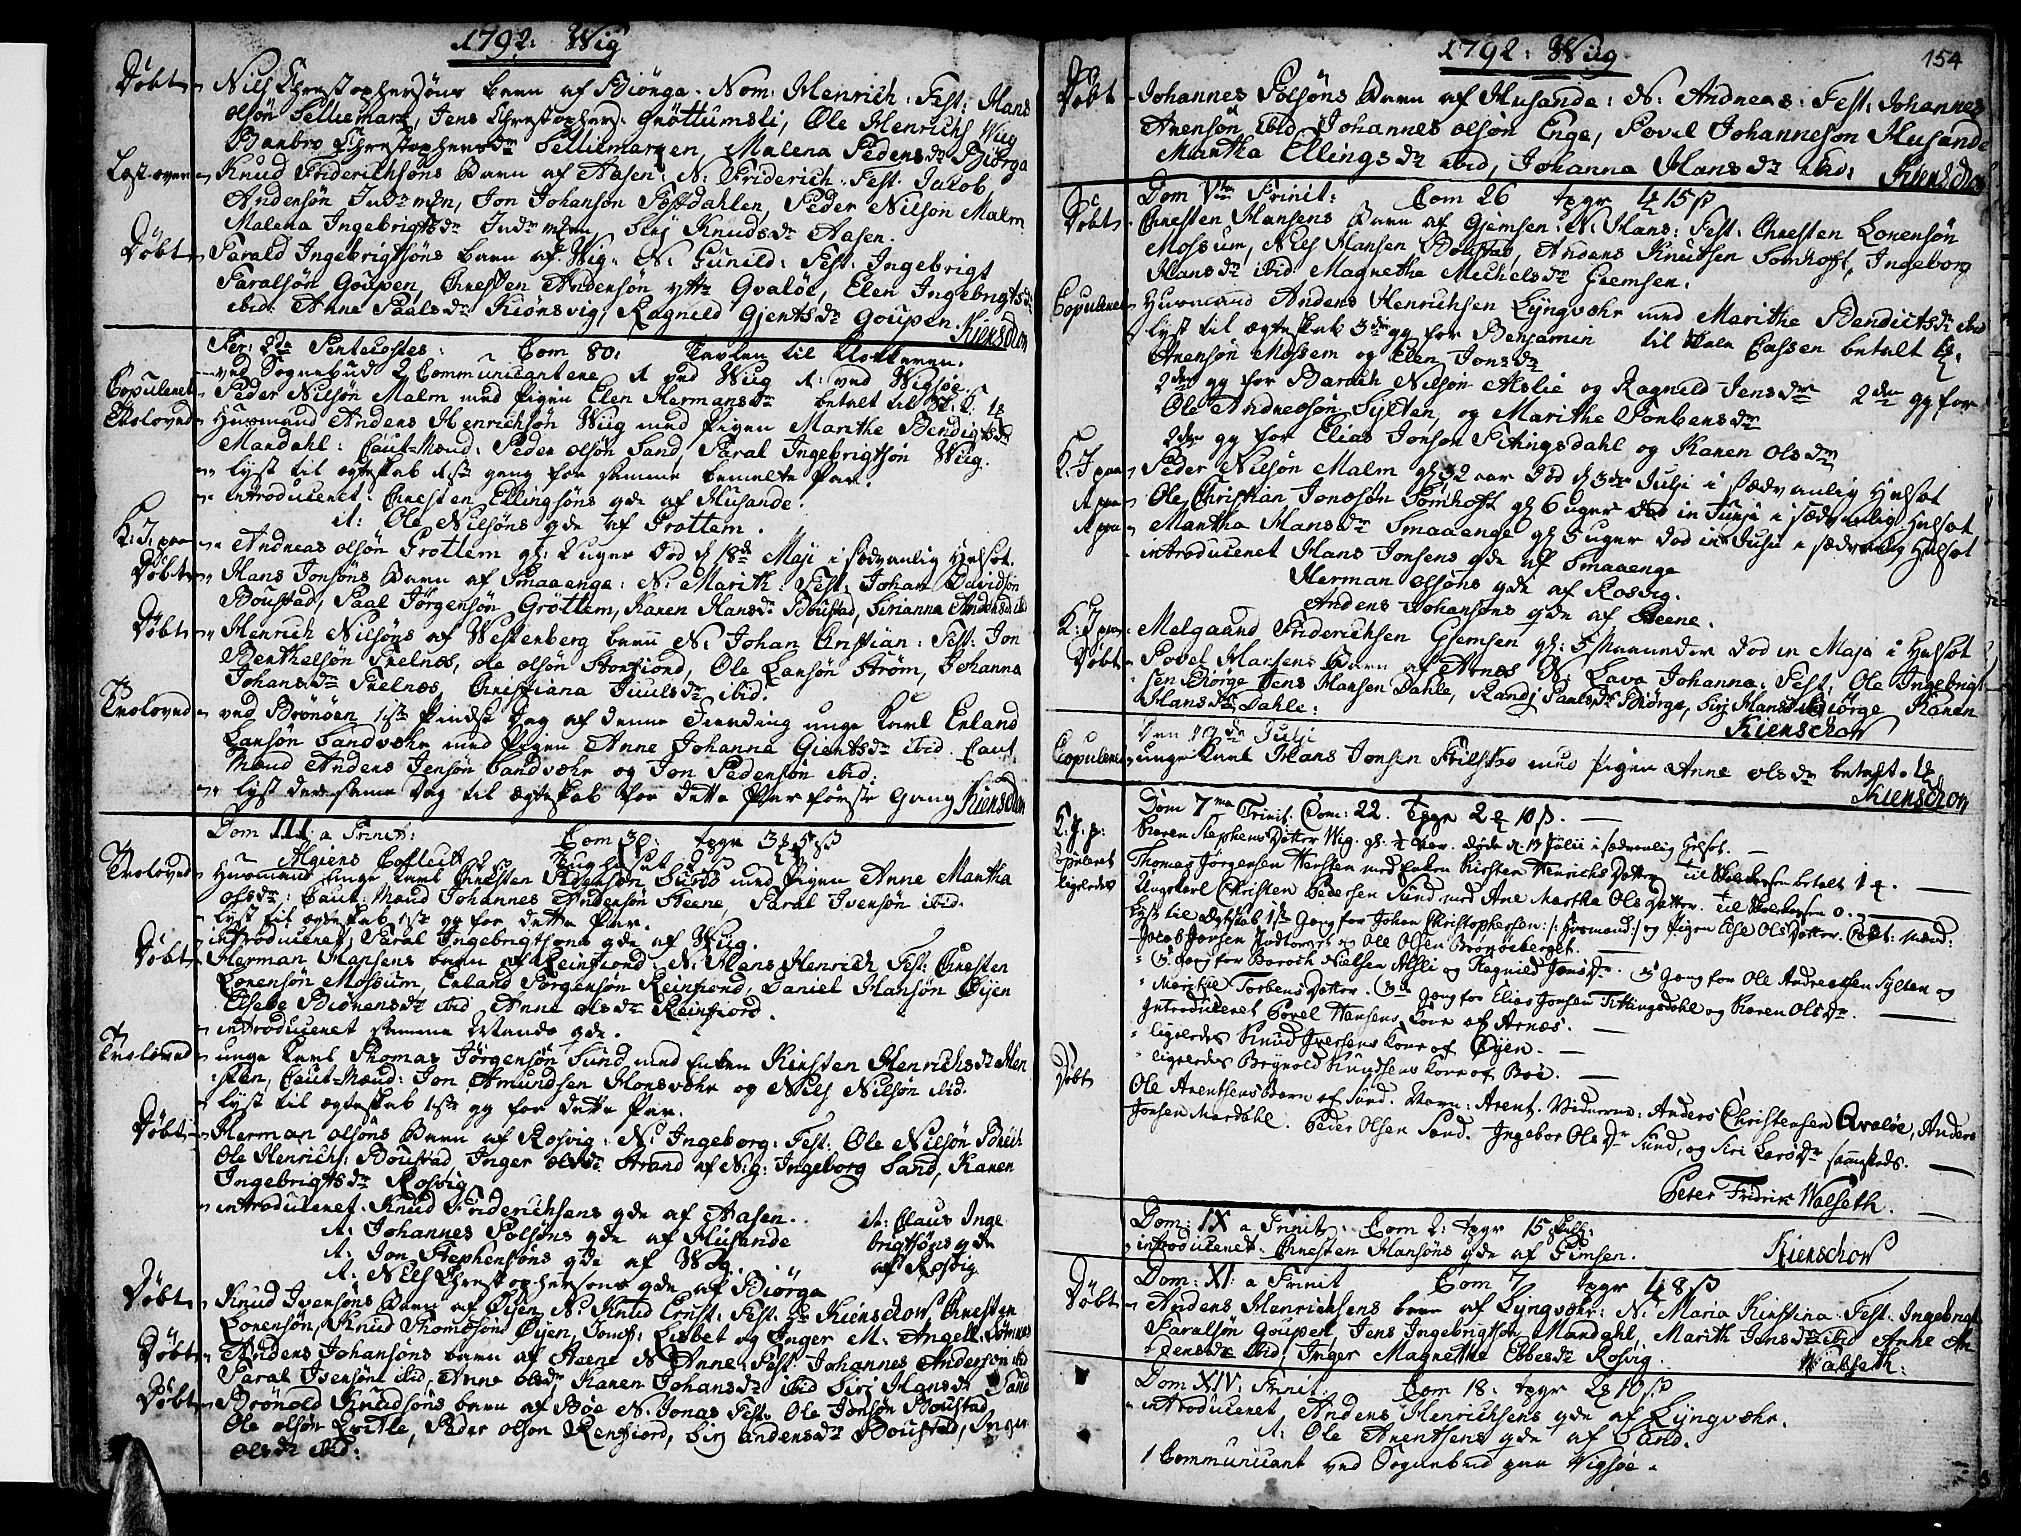 1792: Wiig
Døbt Niels Christophersøns barn af Biørga. Nom: Henrich: Test: Hans
olsøn Selliemark, Jens Christophers: Grøttumsli, Ole Henrichs Wiig
Barbro Christophersdr Selliemarken, Malena Pedersdr Biørga
Læst over Knud Friderichsøns Barn af Aasen: N: Friderich: Test: Jacob
Andersøn, Jon Johansøn, Peder Nilsøn Malm
Malena Ingebrigtsdr, Sirj Knudsdr Aasen.
Døbt Taral Ingebrigtsøns barn af Wiig. N: Gunild: Test: Ingebrigt
Taralsøn Goupen, Christen Andersøn yttr Qvaløe, Elen Ingebrigtsdr
ibid: Anne Paalsdr Kiønsvig, Ragnild Gjertsdr Goupen. Kierschow
Fer: 2da Pentecostes: Com 80: Tavlen til Klokkeren.
ved Sognebud 2 Communicantere 1 ved Wiig 1: ved Wigsøe.
Copuleret Peder Nilsøn Malm med Pigen Elen Hermansdr betalt til
Troloved Husmand Anders Henrichsøn Wiig med Pigen Marithe Bendigtsdr
Mardahl: Caut-Mænd: Peder olsøn Sand, Taral Ingebrigtsøn Wiig.
lyst til ægteskab 1ste gang for samme bemelte Par.
introduceret: Christen Ellingsøns qde af Husande.
it: Ole Nilsøns qde af Grottem.
K: J: paa Andreas olsøn Grottem gl: 2 uger død d 18de Maji i sædvanlig Helsot.
Døbt Hans Jonsøns Barn af Smaaenge: N: Marith: Test: Johan Davidsøn
Boustad, Paal Jørgensøn Grøttem, Karen Hansdr Boustad, Sirianna Andersdr ibid
Døbt Henrich Nilsøns af Westenberg barn N: Johan Christian: Test: Jon
Berthelsøn Trelnæs, ole olsøn Storfiord, Ole Larsøn Strøm, Johanna
Johansdr Trelnæs, Christiana Juulsdr ibid.
Troloved ved Brønøen 1ste Pindse Dag af denne Fierding unge Karl Erland
Larsøn Sandvæhr med Pigen Anne Johanna Giertsdr ibid. Caut
Mænd Anders Jensøn Sandvæhr og Jon Pedersøn ibid:
lyst den samme Dag til ægteskab for dette Par første Gang Kierschow
Dom III: a Trinit: Com 30: tpgr 3 5 ß
Troloved Husmand unge Karl Christen Pedersøn Sund med Pigen Anne Martha
olsdr: Caut: Mænd Johannes Andersøn Steene, Taral Ivensøn ibid.
lyst til ægteskab 1ste gg for dette Par.
introduceret, Taral Ingebrigtsøns qde af Wiig.
Døbt Herman Hansens barn af Reinfiord: N: Hans Henrich Test: Christen
Lorensøn Mossum, Erland Torgensøn Reinfiord, Daniel Hansøn Øijen
Elsebe Biørensdr ibid Anne olsdr Reinfiord.
introduceret samme Mands qde.
Troloved unge Karl Thomas Jørgensøn Sund med Enken Kirsten Henrichsdr
Caut-Mænd: Jon Amundsen Honsvæhr og Nils Nilsøn ibid.
lyst til ægteskab 1ste gg for dette Par.
Døbt Herman olsøns Barn af Rosvig: N: Ingeborg: Test: Ole Nilsøn
Ole Henrichs: Boustad Inger olsdr Strand af N:g: Ingeborg Sand, Karen
Ingebrigtsdr Rosvig
introduceret Knud Friderichsens qde af Aasen.
it: Johannes Tolsøns qde af Husande
it: Claus Ingebrigtsøns qde af Rosvig
it: Jon Stephensøns qde af Wiig.
it: Niels Christophersøns qde af Biørga
Døbt Knud Ivensøns Barn af Øijen, N: Knud Ernst: Test: Hr Kierschow Christen
Lorensøn, Knud Thomsøns Øijen, Jomf: Lisbet og Inger M: Angell
Døbt Anders Johansøns barn af Steene N: Anne: Test: Johannes Andersøn ibid
Taral Ivensøn ibid, Anne olsdr, Karen Johansdr ibid Sirj Hansdr Sand
Døbt Brönold Knudsøns barn af Bøe N: Jonas Test: Ole Jonsøn Boustad,
Ole olsøn, Peder olsøn Renfiord, Sirj andersdr Boustad, Inger
olsdr ibid:
1792: Wiig 154
Døbt Johannes Tolsøns Barn af Husande: N: Andreas: Test: Johannes
Arensøn ibid Johannes olsøn Enge, Povel Johannesøn Husande
Martha Ellingsdr ibid, Johanna Hansdr ibid: Kierschow
Dom Vta Trinit: Com 26 tpgr 4 15 ß
Døbt Christen Hansens Barn af Gjemsen: N: Hans: Test: Christen Lorensøn
Mossum, Niels Hansen Bolstad, Anders Knutsen Somhoft, Ingeborg
Hansdr ibid Magnetha Michelsdr Geemsen.
Copuleret Husmand Anders Henrichsen Lyngvæhr med Marithe Bendictsdr ibid
lyst til ægteskab 3die gg for Benjamin til Cassen betalt
Arensøn Mossem og Elen Jonsdr
2den gg for Baruch Nilsøn Aslie og Ragnild Jensdr 2den gg for
Ole Andreasøn Sylten, og Marithe Torbersdr
2den gg for Elias Jonsøn Titingsdahl og Karen Olsdr
K: J paa Peder Nilsøn Malm gl: 32 aar død d 3die Julji i sædvanlig Helsot
it paa Ole Christian Jonasøn Somhoft gl 6 uger død in Junji i sædvanlig Helsot
it paa Martha Hansdr Smaaenge gl 5 uger død in Junji i sædvanlig Helsot
introduceret Hans Jonsens qde af Smaaenge
Herman olsøns qde af Rosvig.
Anders Johansøns qde af Steene.
K: J paa Melgaard Friderichsen Gjemsen gl: 5 Maaneder død in Maja i Helsot
Døbt Povel Hansens Barn af Arnæs N: Lava Johanna: Test: Ole Ingebrigt
sen Biørge Jens Hansen Dahle, Randj Paalsdr Biørge, Sirj Hansdr Biørge Karen
Hansdr Dahle:
Kierschow
Den 19de Julji
Copuleret unge Karl Hans Jonsen Trilstad med Pigen Anne olsdr betalt
Kierschow
Dom 7ma Trinit. Com: 22. Tpgr 2 10 ß.
K. J. p: Karen Stephens Datter Wiig. gl: ½ aar. døde d. 13 Julii i sædvanlig Helsot.
Copuleret Thomas Jørgensen med Enken Kirsten Henrichs Datter betalt 1
ligeledes Ungekarl Christen Pedersen Sund med Ane Martha Ols Datter. til 0.
Lyst til Ægteskab 1ste Gang for Johan Christophersen /: Husmand :/ og Pigen Else Ols Datter. Caut: Mænd:
Jacob Jonsen og Ole Olsen Brønøeberget.
3die Gang for Baroch Nielsen Asli og Ragnild Jensdr. 3die Gang for Ole Andreassen Sylten og
Marithe Torbens Datter. 3die Gang for Elias Jonsen Titingsdahl og Karen Olsdr.
Introduceret Povel Hansens Kone af Arnæs.
ligeledes Knud Iversens Kone af Øijen.
ligeledes Brynold Knudsens Kone af Bøe.
Døbt Ole Arentsens Barn af Sund. Navn: Arent. Vidnerne: Anders Christensen Qvaløe, Anders
Jonsen Mardahl. Peder Olsen Sand. Ingebor Ols Dr Sund, og Siri Larsdr sammesteds.
Peter Fridrik Walseth.
Dom: IX a Trinit. Com 2: tpgr 15 skill
introduceret: Christen Hansøns qde af Gimsen. Kierschow
Dom: XI: a Trinit Com 7 tpgr 4 8 ß
Døbt Anders Henrichsens barn af Lyngvæhr: N: Maria Kirstina. Test: Ingebrigt
Taralsøn Goupen, Jens Ingebrigtsøn Mardahl, Marith Jonsdr ibid Anne An
dersdr ibid, Inger Magnethe Ebbesdr Rosvig. Walseth:
Dom XIV: Trinit: Com 18: tpgr 2 10 ß
introduceret Anders Henrichsens qde af Lyngvæhr.
it: Ole Arentsens qde af Sand.
1 Communicant ved Sognebud paa Wigsøe.